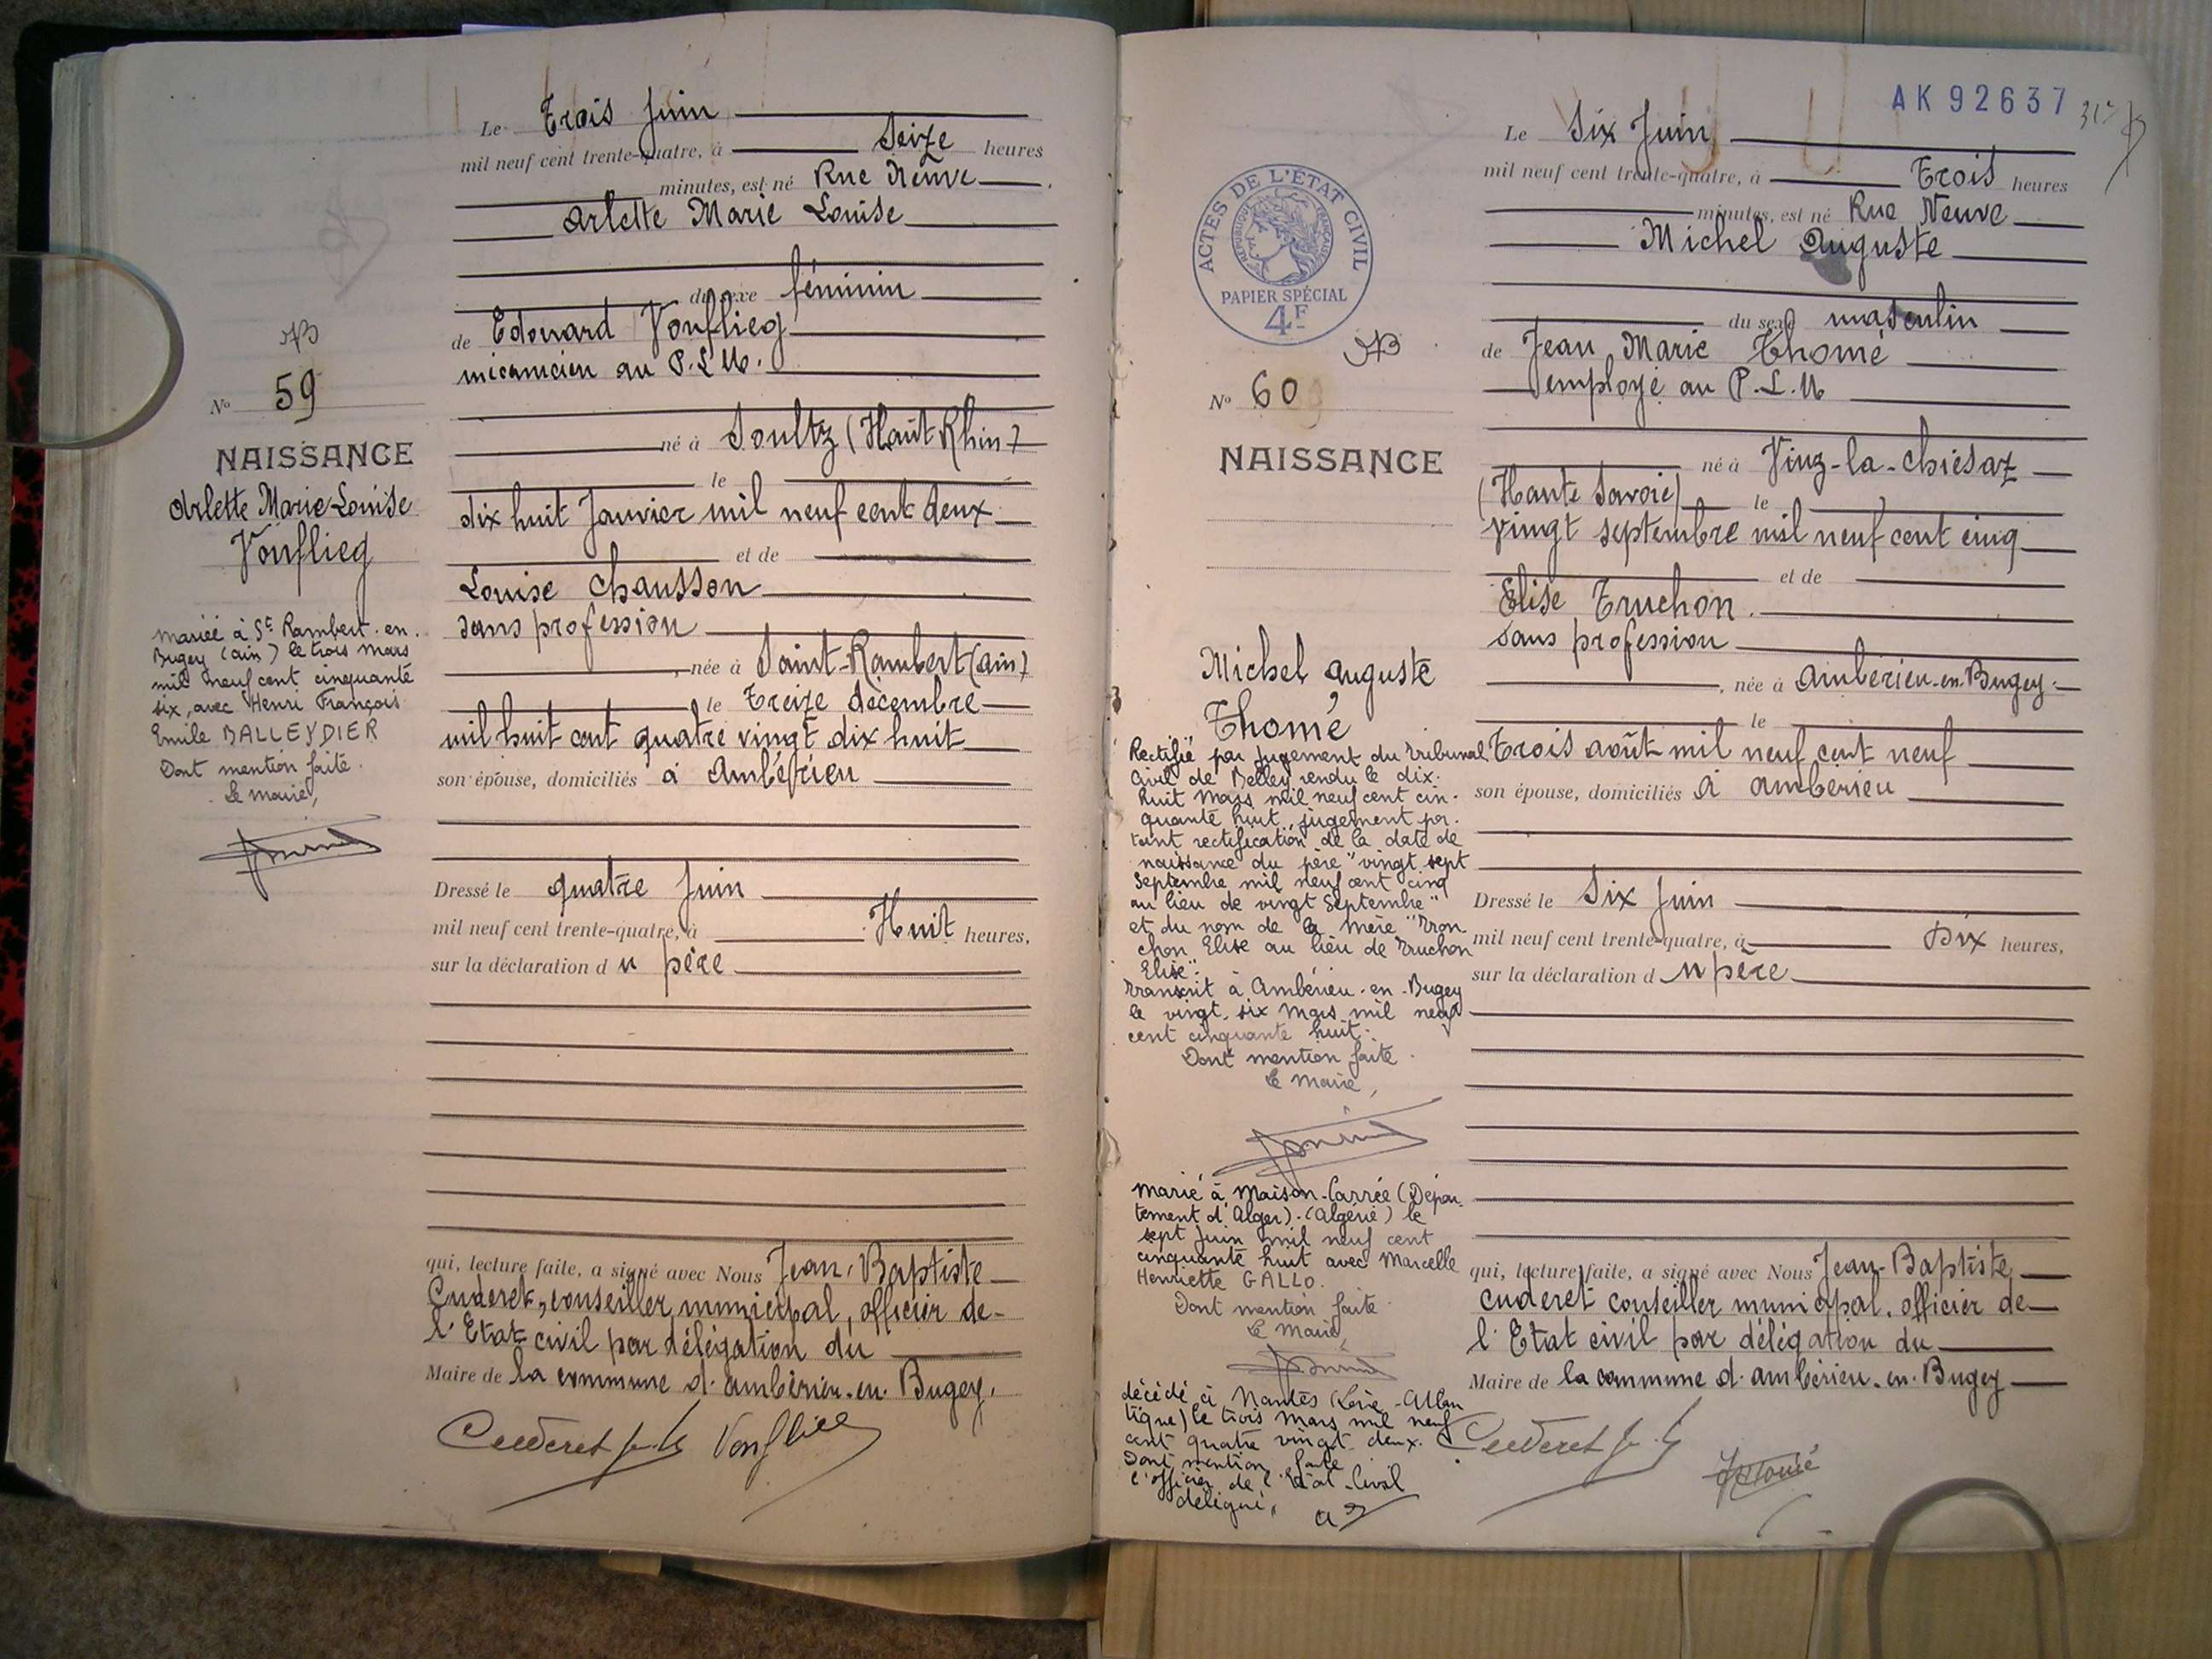 Le Trois Juin
mil neuf cent trente-quatre, à Seize heures
minutes, est né Rue Neuve
Arlette Marie Louise
du sexe féminin
de Edouard Vonflieg
mécanicien au P.L.M.
né à Soultz (Haut Rhin)
le
dix huit Janvier mil neuf cent deux
et de
Louise Chausson
sans profession
, née à Saint-Rambert (ain)
le Treize décembre
mil huit cent quatre vingt dix huit
son épouse, domiciliés à Ambérieu
Dressé le quatre Juin
mil neuf cent trente-quatre, à Huit heures,
sur la déclaration du père
qui, lecture faite, a signé avec Nous Jean-Baptiste
Cuderet, conseiller municipal, officier de
l'Etat civil par délégation du
Maire de la commune d'ambérieu-en-Bugey.
Cuderet J.B Vonflieg
N° 59
NAISSANCE
Arlette Marie Louise
Vonflieg
Mariée à St Rambert-en-
Bugey (ain) le trois mars
mil neuf cent cinquante
six, avec Henri François
Emile BALLEYDIER
Dont mention faite.
Le maire,
AK 92637
Le Six Juin
mil neuf cent trente-quatre, à Trois heures
minutes, est né Rue Neuve
Michel Auguste
du sexe masculin
de Jean Marie Thomé
employé au P.L.M
né à Viuz-la-chiésaz
(Haute Savoie) le
vingt septembre mil neuf cent cinq
et de
Elise Truchon.
sans profession
, née à Ambérieu-en-Bugey
le
Trois août mil neuf cent neuf
son épouse, domiciliés à ambérieu
Dressé le Six Juin
mil neuf cent trente-quatre, à Dix heures,
sur la déclaration du père
qui, lecture faite, a signé avec Nous Jean-Baptiste
Cuderet conseiller municipal, officier de
l'Etat civil par délégation du
Maire de la commune d'ambérieu-en-Bugey
Cuderet J.B
Thomé
ACTES DE L'ÉTAT CIVIL
RÉPUBLIQUE FRANÇAISE
PAPIER SPÉCIAL
4F
N° 60
NAISSANCE
Michel Auguste
Thomé
Rectifié par jugement du Tribunal
Civil de Belley rendu le dix-
huit Mars mil neuf cent cin-
quante huit, jugement por-
tant rectification de la date de
naissance du père "vingt sept
Septembre mil neuf cent cinq
au lieu de vingt Septembre"
et du nom de la mère "Tron
chon Elise au lieu de Truchon
Elise".
Transcrit à Ambérieu-en-Bugey
le vingt-six Mars mil neuf
cent cinquante huit.
Dont mention faite.
Le Maire,
Marié à Maison-Carrée (Dépar-
tement d'Alger) (Algérie) le
sept Juin mil neuf cent
cinquante huit avec Marcelle
Henriette GALLO.
Dont mention faite
Le Maire,
décédé à Nantes (Loire-Atlan
tique) le trois Mars mil neuf
cent quatre vingt deux.
Dont mention faite
l'officier de l'Etat-Civil
délégué,